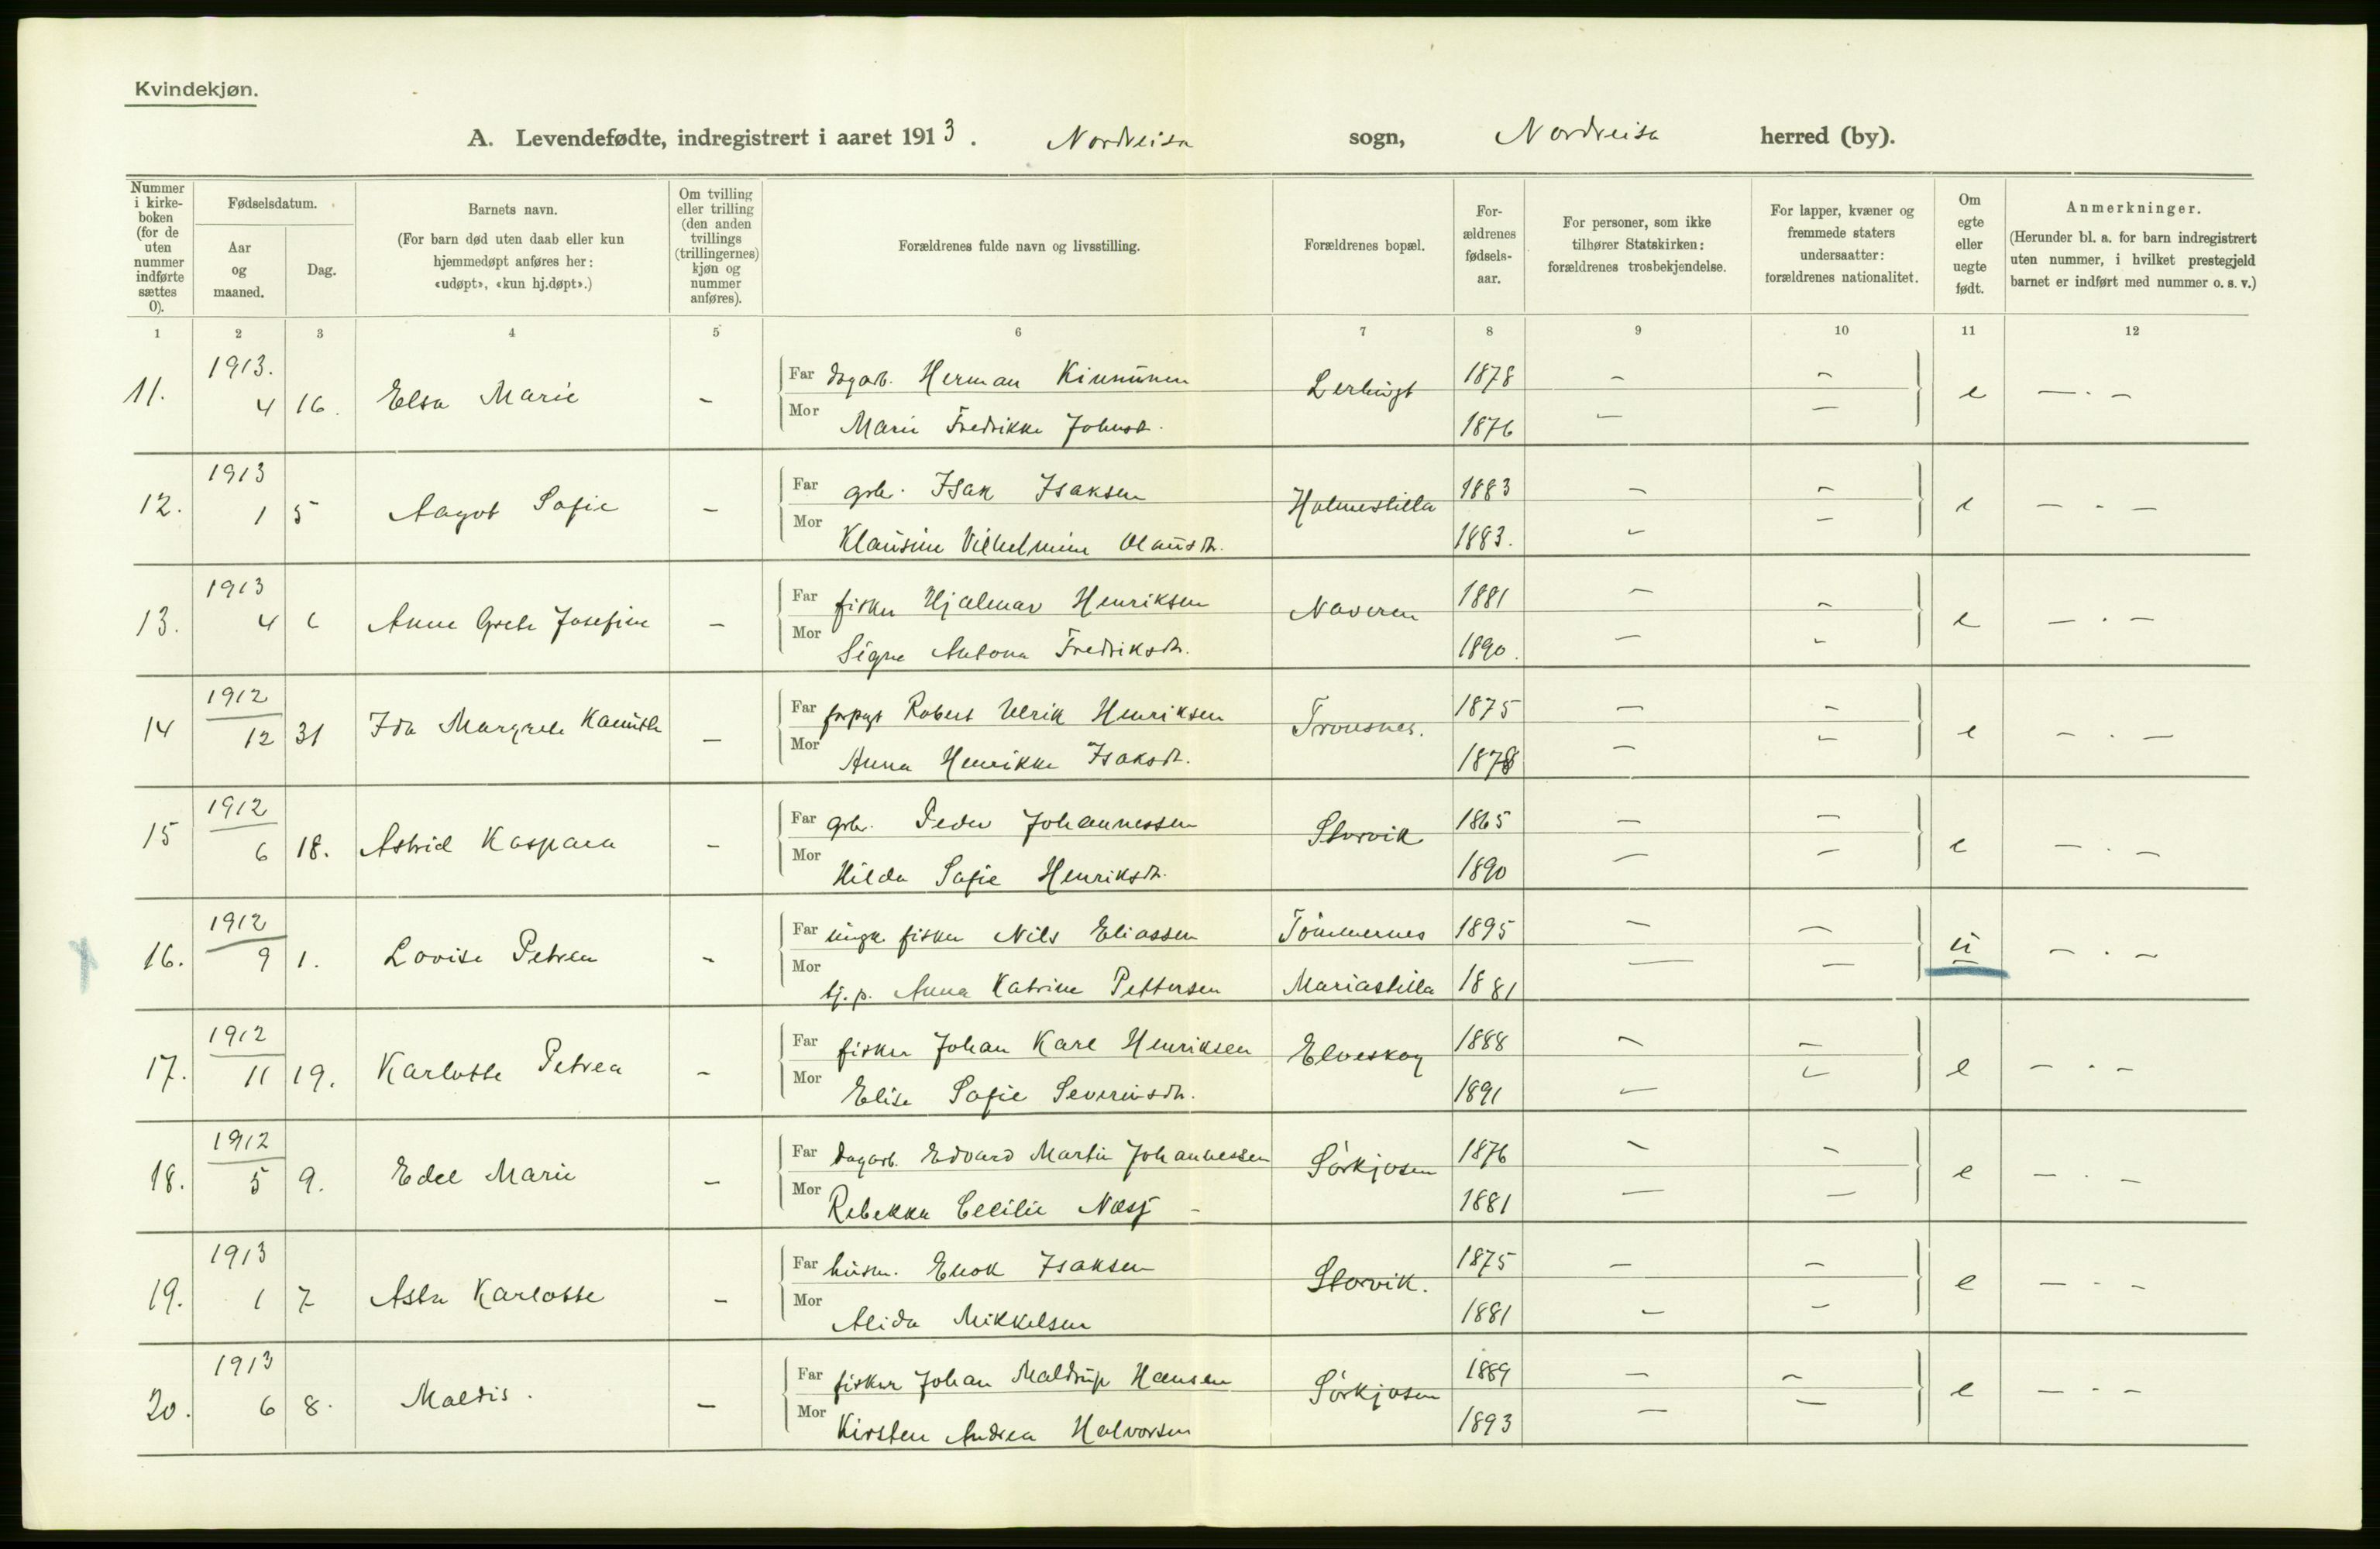 Kvindekjøn.
A. Levendefødte, indregistrert i aaret 1913. Nordreisa sogn, Nordreisa herred (by).
Nummer i kirkeboken (for de uten nummer indførte sættes 0).
Fødselsdatum.
Aar og maaned.
Dag.
Barnets navn.
(For barn død uten daab eller kun hjemmedøpt anføres her: «udøpt», «kun hj.døpt».)
Om tvilling eller trilling (den anden tvillings (trillingernes) kjøn og nummer anføres).
Forældrenes fulde navn og livsstilling.
Forældrenes bopæl.
Forældrenes fødselsaar.
For personer, som ikke tilhører Statskirken: forældrenes trosbekjendelse.
For lapper, kvæner og fremmede staters undersaatter: forældrenes nationalitet.
Om egte eller uegte født.
Anmerkninger.
(Herunder bl. a. for barn indregistrert uten nummer, i hvilket prestegjeld barnet er indført med nummer o. s. v.)
1 2 3 4 5 6 7 8 9 10 11 12
11. 1913. 4 16. Elsa Marie - Far dagarb. Herman Kinnunen 1878 - - e - . -
Mor Marie Fredrikke Johnsd. 1876 - -
12. 1913 1 5 Aagot Sofie - Far grbr. Isak Isaksen Holmestilla 1883 - - e - . -
Mor Klausine Vilhelmine Olausdtr. 1883. - -
13. 1913 4 6 Anne Grete Josefine - Far fisker Hjalmar Henriksen Naveren 1881 - - e - . -
Mor Signe Antona Fredriksdtr. 1890. - -
14 1912 12 31 Ida Margrete - Far forpagt Robert Ulrik Henriksen 1875 - - e - . -
Mor Anna Henrikke Isaksdtr. 1878 - -
15 1912 6 18. Astrid Kaspara - Far grbr. Peder Johannessen Storvik 1865 - - e - . -
Mor Hilda Sofie Henriksdtr. 1890 - -
16. 1912 9 1. Lovise Petrea - Far ungk. fisker Nils Eliassen Tømmernes 1895 - - u - . -
Mor tj.p. Anna Katrine Pettersen Mariastilla 1881 - -
17. 1912 11 19. Karlotte Petrea - Far fisker Johan Karl Henriksen Elveskog 1888 - - e - . -
Mor Elise Sofie Severinsdtr. 1891 - -
18. 1912 5 9. Edel Marie - Far dagarb. Edvard Martin Johannessen Sörkjosen 1876 - - e - . -
Mor Rebekka Cecilie - 1881 - -
19. 1913 1 7 Asta Karlotte - Far husm. Enok Isaksen Storvik. 1875 - - e - . -
Mor Alida Mikkelsen 1881 - -
20. 1913 6 8. Maldis. - Far fisker Johan Maldrup Hansen Sörkjosen 1889 - - e - . -
Mor Kirsten Andrea Halvorsen 1893 - -